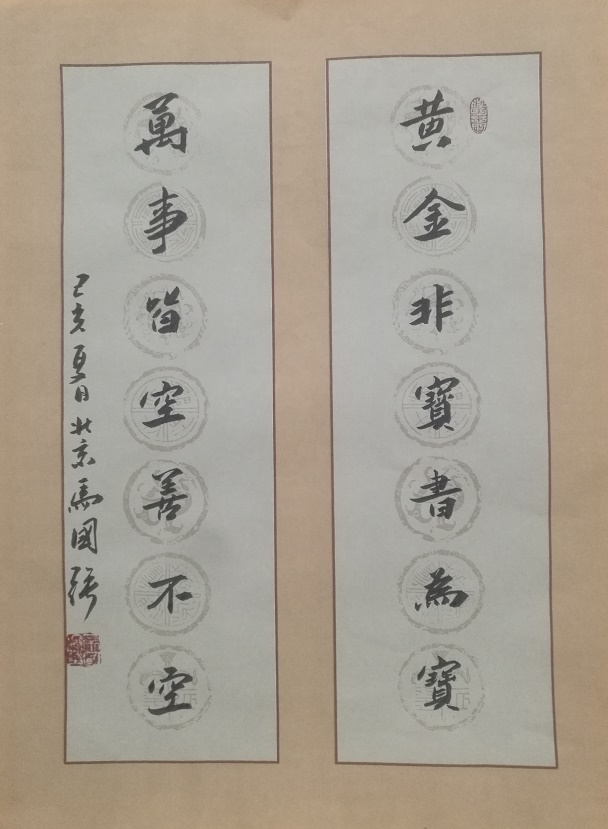 黄金非寶書為寶
萬事皆空善不空
己亥夏日北京馬國強